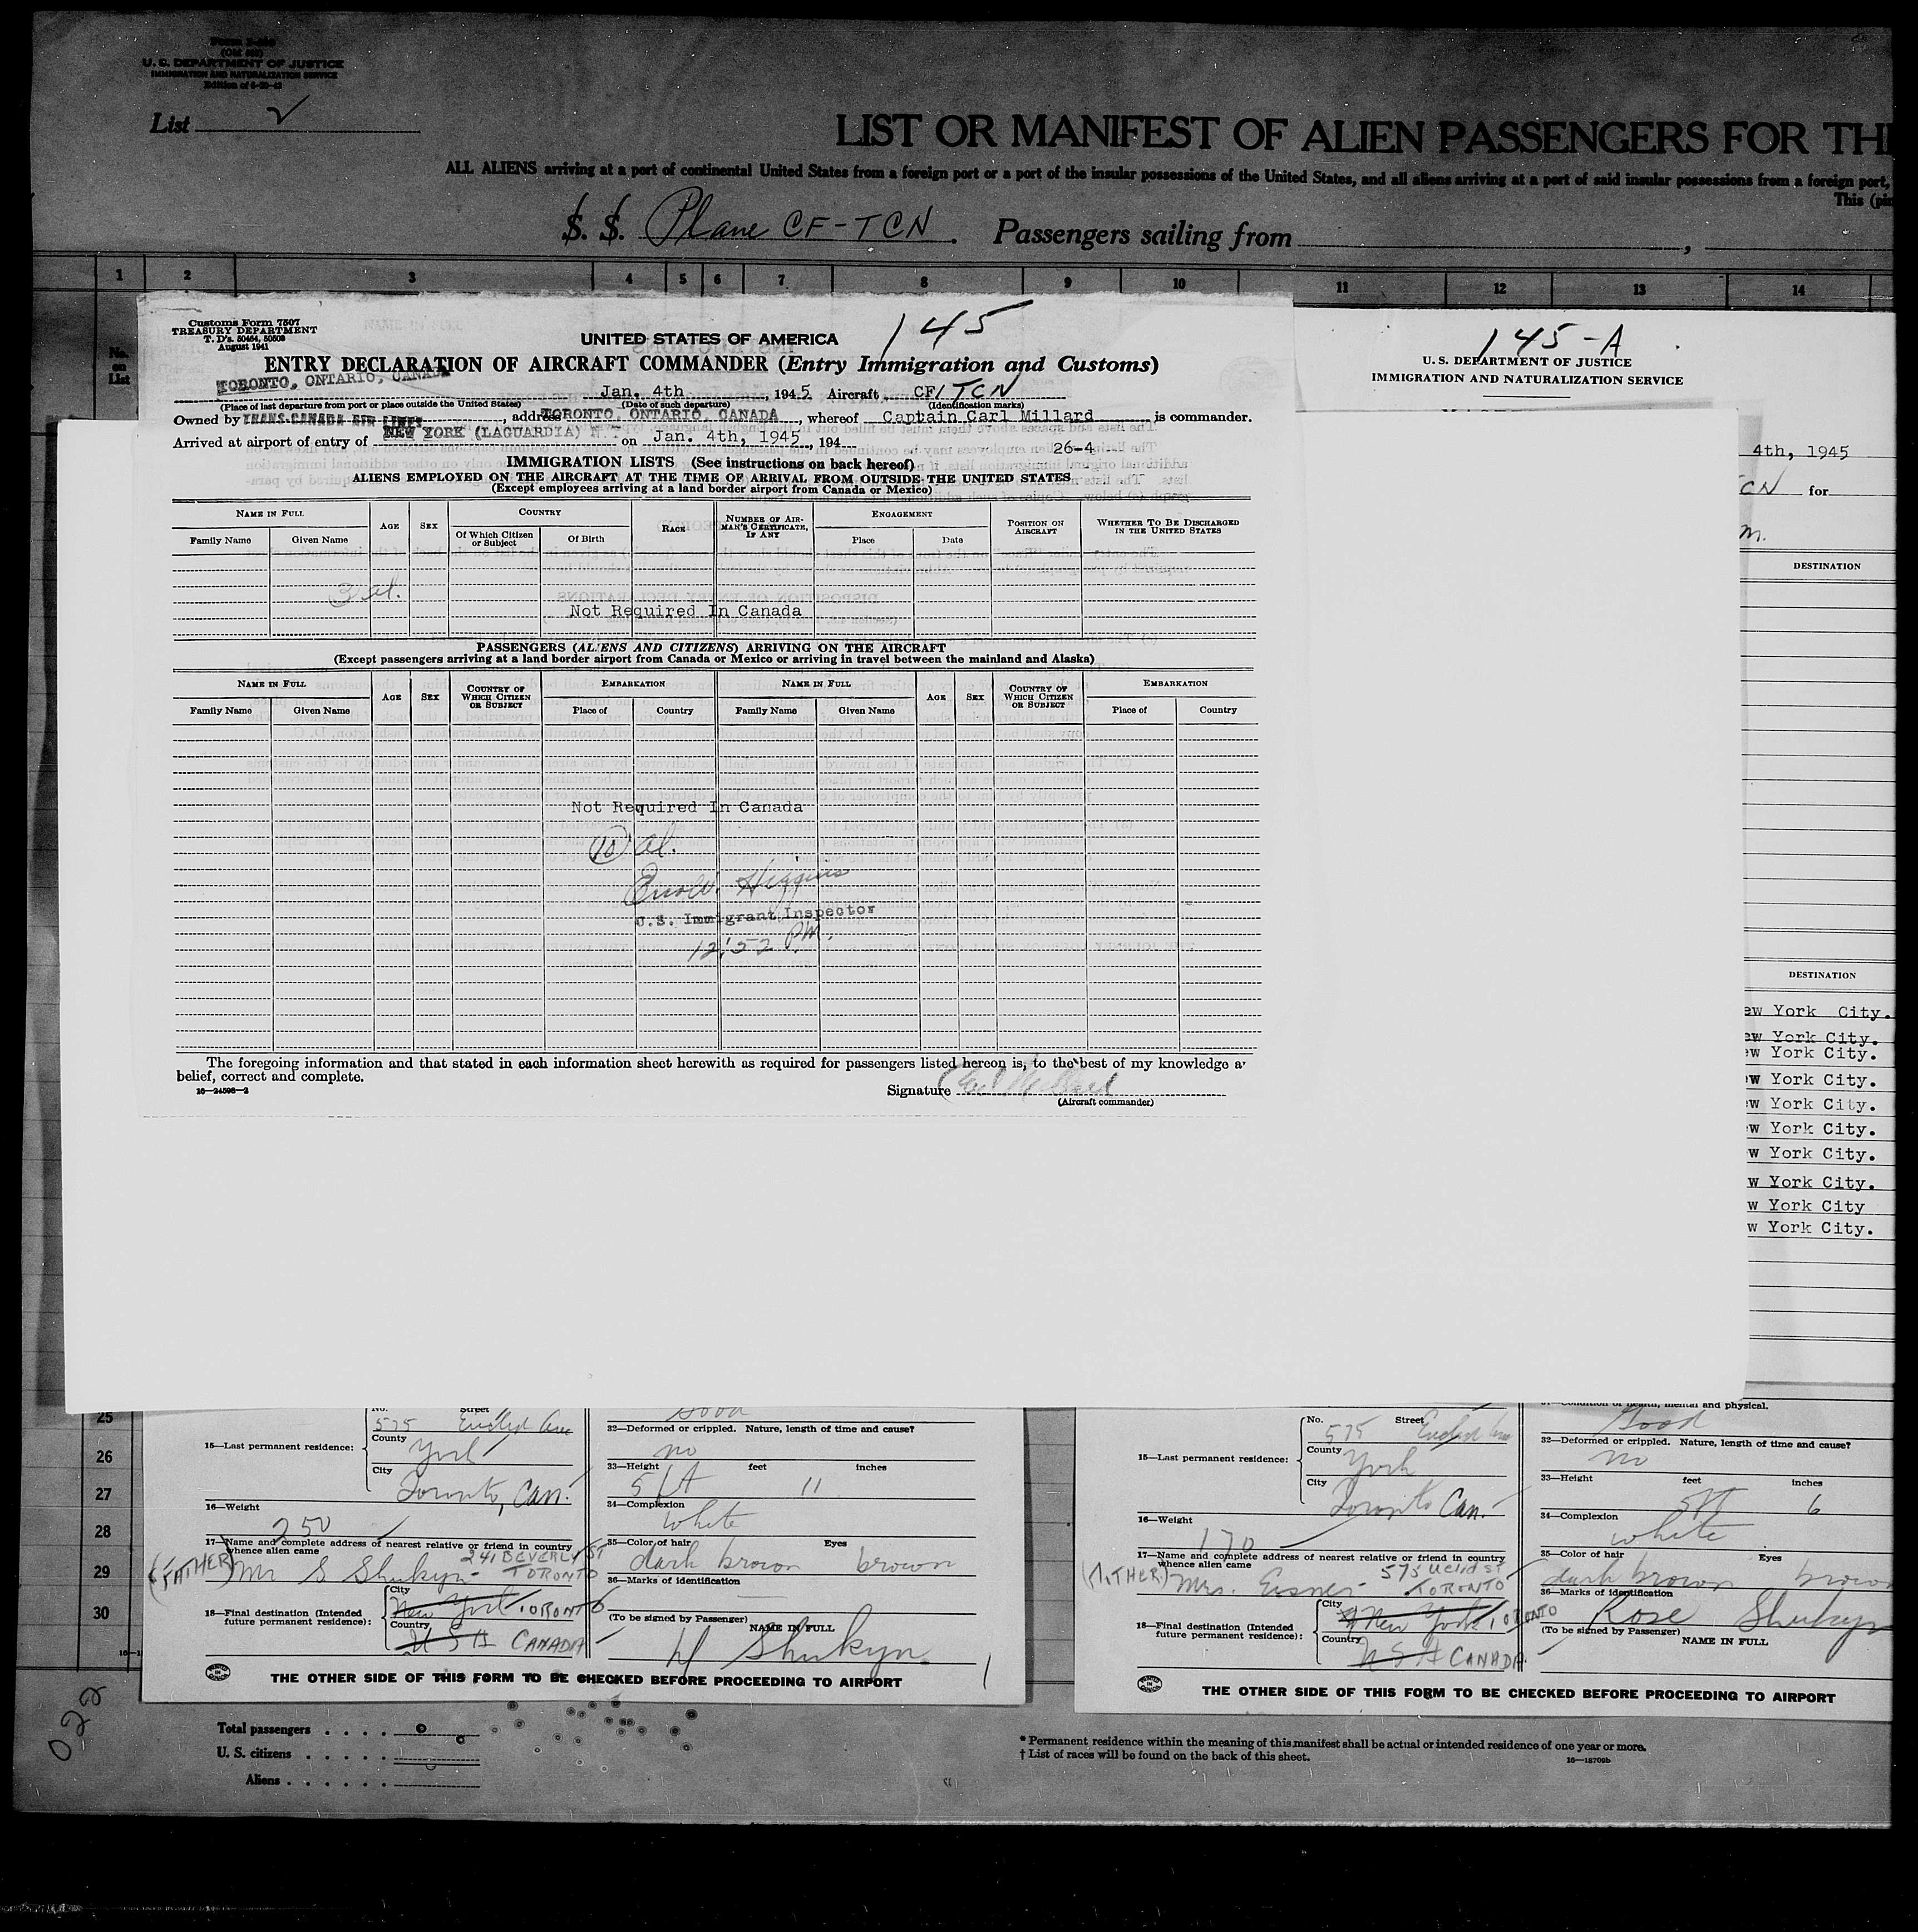 Form I-415
(Old 500)
U. S. DEPARTMENT OF JUSTICE
IMMIGRATION AND NATURALIZATION SERVICE
List 2
LIST OR MANIFEST OF ALIEN PASSENGERS FOR TH
ALL ALIENS arriving at a port of continental United States from a foreign port or a port of the insular possessions of the United States, and all aliens arriving at a port of said insular possessions from a foreign port,
This (pi
S. S. Plane CF-TCN. Passengers sailing from
1 2 3 4 5 6 7 8 9 10 11 12 13 14
No. on List
Customs Form 7507
TREASURY DEPARTMENT
T. D's. 50464, 50503
August 1941
UNITED STATES OF AMERICA
145
ENTRY DECLARATION OF AIRCRAFT COMMANDER (Entry Immigration and Customs)
TORONTO, ONTARIO, CANADA Jan. 4th, 1945 Aircraft CF/TCN
(Place of last departure from port or place outside the United States) (Date of such departure) (Identification marks)
Owned by TRANS-CANADA AIR LINES address TORONTO, ONTARIO, CANADA, whereof Captain Carl Millard is commander.
Arrived at airport of entry of NEW YORK (LAGUARDIA) N. on Jan. 4th, 1945, 194
26-4
IMMIGRATION LISTS (See instructions on back hereof)
ALIENS EMPLOYED ON THE AIRCRAFT AT THE TIME OF ARRIVAL FROM OUTSIDE THE UNITED STATES
(Except employees arriving at a land border airport from Canada or Mexico)
NAME IN FULL AGE SEX COUNTRY RACE NUMBER OF AIRMAN'S CERTIFICATE, IF ANY ENGAGEMENT POSITION ON AIRCRAFT WHETHER TO BE DISCHARGED IN THE UNITED STATES
Family Name Given Name Of Which Citizen or Subject Of Birth Place Date
3 al.
Not Required In Canada
PASSENGERS (ALIENS AND CITIZENS) ARRIVING ON THE AIRCRAFT
(Except passengers arriving at a land border airport from Canada or Mexico or arriving in travel between the mainland and Alaska)
NAME IN FULL AGE SEX COUNTRY OF WHICH CITIZEN OR SUBJECT EMBARKATION NAME IN FULL AGE SEX COUNTRY OF WHICH CITIZEN OR SUBJECT EMBARKATION
Family Name Given Name Place of Country Family Name Given Name Place of Country
Not Required In Canada
10 al.
Higgins
U.S. Immigrant Inspector
12:52 PM.
The foregoing information and that stated in each information sheet herewith as required for passengers listed hereon is, to the best of my knowledge a
belief, correct and complete.
16—24598-2
Signature Carl Millard
(Aircraft commander)
145-A
U. S. DEPARTMENT OF JUSTICE
IMMIGRATION AND NATURALIZATION SERVICE
4th, 1945
CN for
m.
DESTINATION
DESTINATION
ew York City.
ew York City.
ew York City.
w York City.
w York City.
w York City.
w York City.
w York City.
w York City
w York City.
25
26
27
28
29
30
No. Street
575 Euclid Ave
15—Last permanent residence:
County
York
City
Toronto, Can.
16—Weight
250
17—Name and complete address of nearest relative or friend in country whence alien came
(FATHER) Mr S Shukyn - 241 BEVERLY ST TORONTO
18—Final destination (Intended future permanent residence):
City
New York TORONTO
Country
U S A CANADA
Good
32—Deformed or crippled. Nature, length of time and cause?
no
33—Height feet inches
5 ft 11
34—Complexion
white
35—Color of hair Eyes
dark brown brown
36—Marks of identification
(To be signed by Passenger) NAME IN FULL
H Shukyn
1
THE OTHER SIDE OF THIS FORM TO BE CHECKED BEFORE PROCEEDING TO AIRPORT
No. Street
575 Euclid Ave
15—Last permanent residence:
County
York
City
Toronto Can.
16—Weight
170
17—Name and complete address of nearest relative or friend in country whence alien came
Mrs. 575 Uclid ST TORONTO
18—Final destination (Intended future permanent residence):
City
New York TORONTO
Country
U S A CANADA
31—Condition of health, mental and physical.
Good
32—Deformed or crippled. Nature, length of time and cause?
no
33—Height feet inches
5ft 6
34—Complexion
white
35—Color of hair Eyes
dark brown brown
36—Marks of identification
Rose Shukyn
(To be signed by Passenger) NAME IN FULL
THE OTHER SIDE OF THIS FORM TO BE CHECKED BEFORE PROCEEDING TO AIRPORT
022
Total passengers . . . .
U. S. citizens . . . . .
Aliens . . . . . .
* Permanent residence within the meaning of this manifest shall be actual or intended residence of one year or more.
† List of races will be found on the back of this sheet.
16—18709b